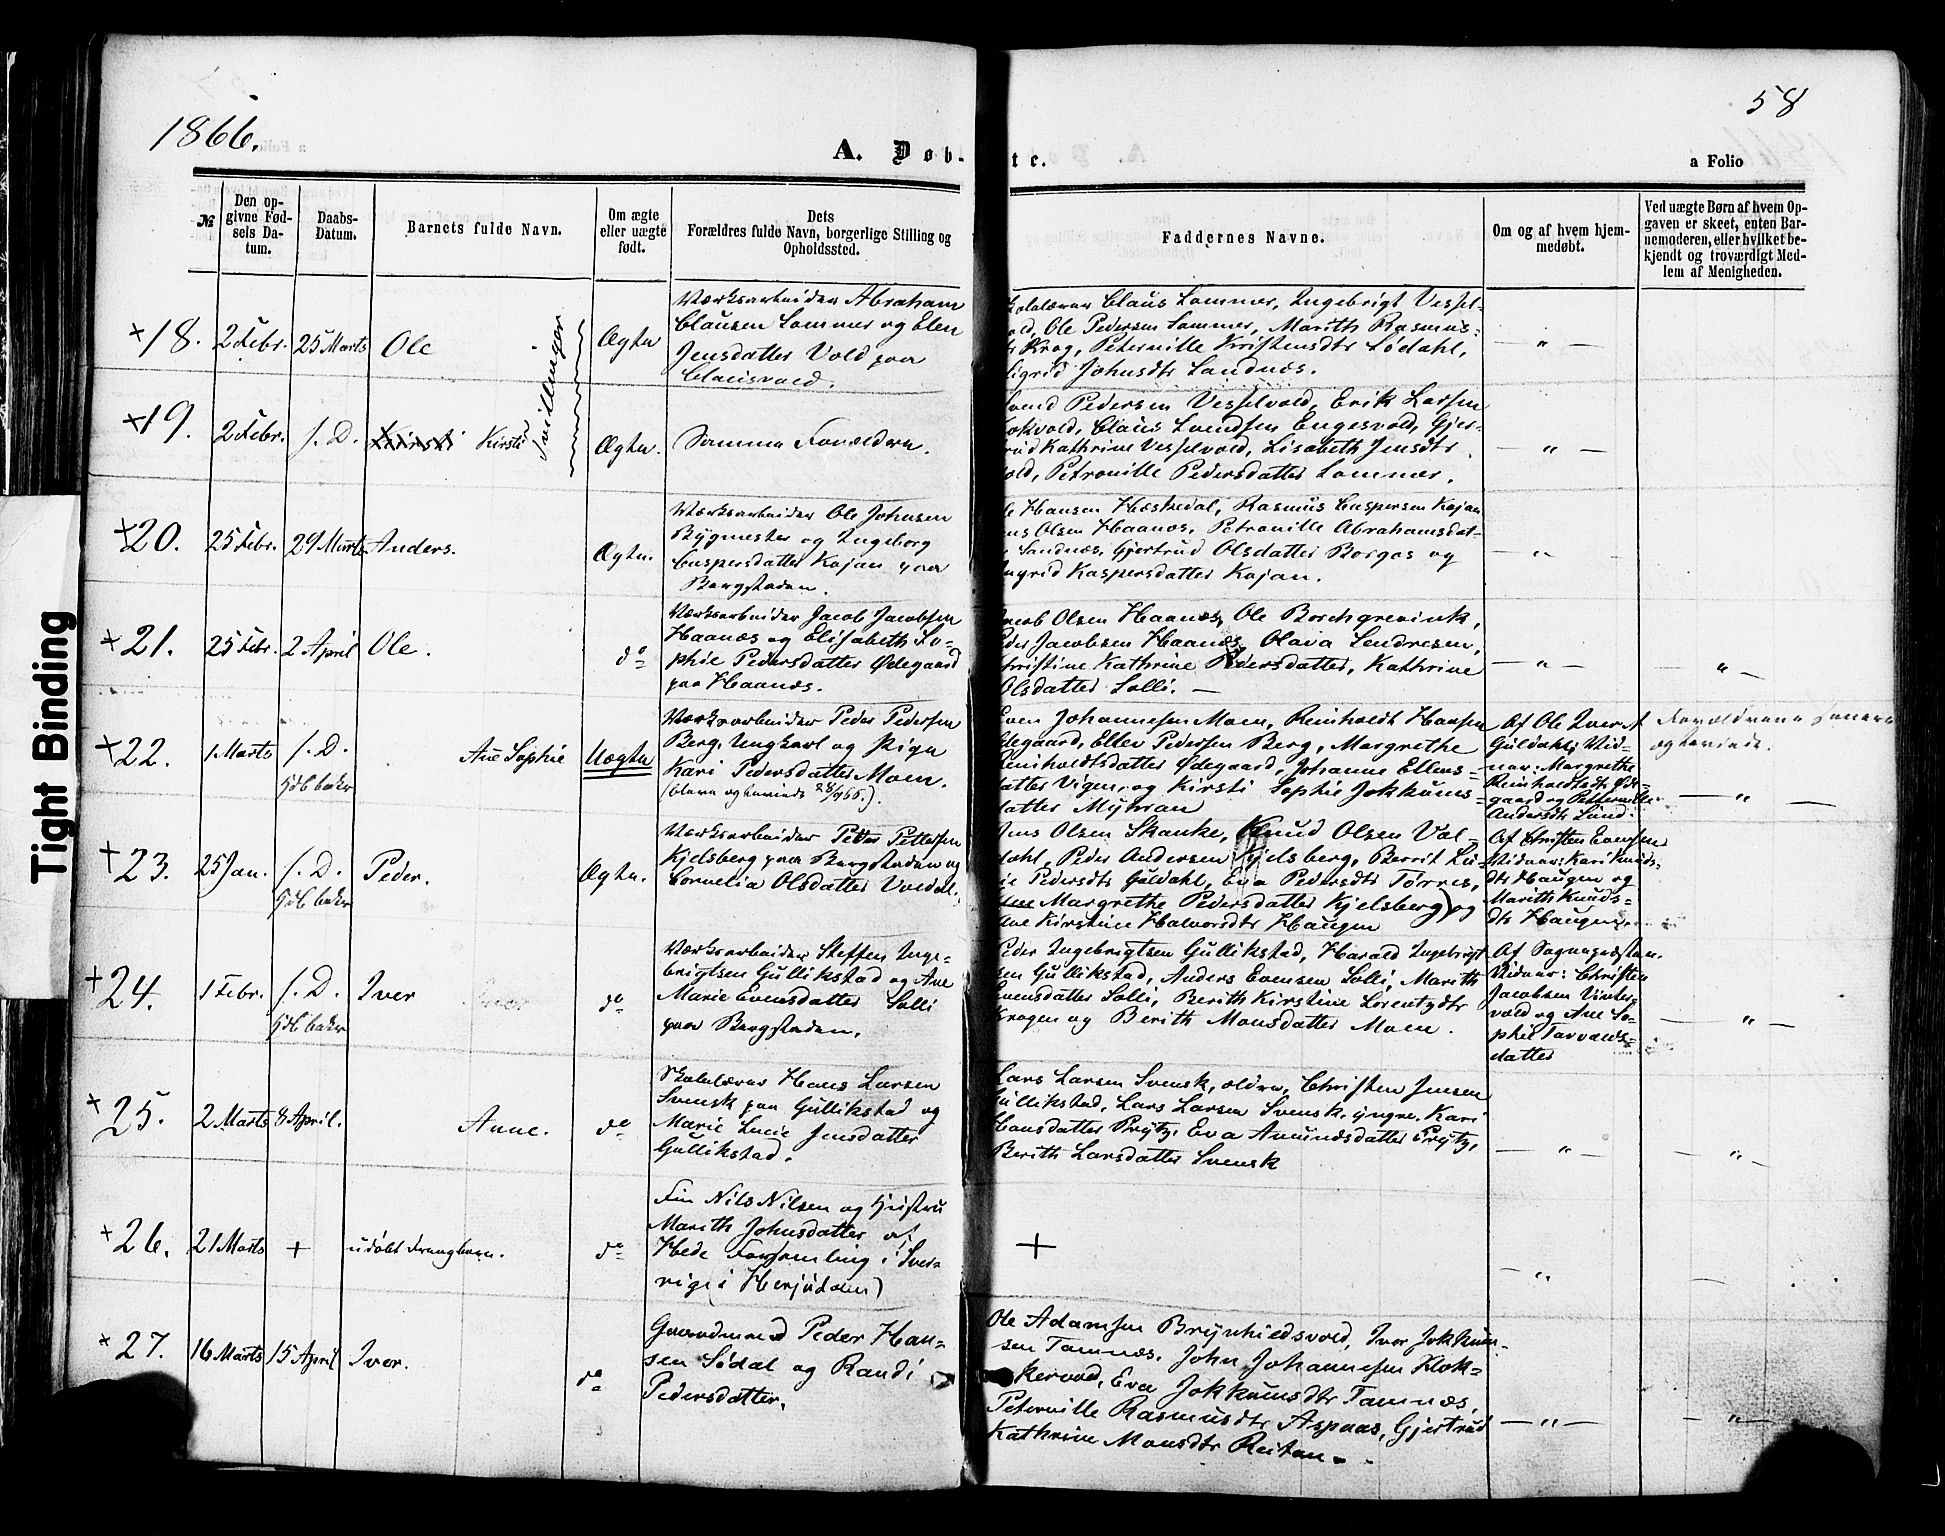 1866.
58
A. Døb-
te.
a Folio
№
Den op-
givne Fød-
sels Da-
tum.
Daabs-
Datum.
Barnets fulde Navn.
Om ægte
eller uægte
født.
Dets
Forældres fulde Navn, borgerlige Stilling og
Opholdssted.
Faddernes Navne.
Om og af hvem hjem-
medøbt.
Ved uægte Børn af hvem Op-
gaven er skeet, enten Bar-
nemoderen, eller hvilket be-
kjendt og troværdigt Med-
lem af Menigheden.
+ 18. 2 Febr. 25 Marts Ole
Tvillinger
Ægte
Værksarbeider Abraham
Clausen Lommer og Elen
Jensdatter Vold paa
Clausvold.
Claus Lommer, Ingebrigt Vessel-
vold, Ole Pedersen Lommer, Marith Rasmus-
Krog, Peternille Kristensdtr Lødahl,
Sigrid Johnsdtr Sandnæs.
— „ —
+ 19. 2 Febr. s. D. Kirsti Kirsti
Ægte.
Samme Forældre.
Svend Pedersen Vesselvold, Erik Larsen
Claus Svendsen Engesvold, Gjer-
trud Kathrine Vesselvold, Lisabeth Jensdtr
Vold, Petronille Pedersdatter Lommer.
— „ —
+ 20. 25 Febr. 29 Marts Anders.
Ægte.
Værksarbeider Ole Johnsen
Bygmester og Ingeborg
Caspersdatter Kojan paa
Bergstaden.
Ole Hansen Hæskedal, Rasmus Caspersen Kojan
Jens Olsen Haanæs, Petronille Abrahamsdat-
Sandnæs, Gjertrud Olsdatter Borgos og
Ingrid Kaspersdatter Kojan.
— „ —
+ 21. 25 Febr. 2 April Ole.
do
Værksarbeider Jacob Jacobsen
Haanæs og Elisabeth So-
phie Pedersdatter Ødegaard
paa Haanæs.
Jacob Olsen Haanæs, Ole Borchgrevink,
Peder Jacobsen Haanæs, Olava Sendresen,
Christine Kathrine Pedersdatter, Kathrine
Olsdatter Solli. —
— „ —
— „ —
+ 22. 1 Marts s. D.
Ane Sophie
Uægte
Værksarbeider Peder Pedersen
Berg, Ungkarl og Pige
Kari Pedersdatter Moen.
Even Johannesen Moen, Reinholdt Hansen
Ødegaard, Eller Pedersen Berg, Margrethe
Reinholdtsdatter Ødegaard, Johanne Ellens-
datter Vigen, og Kirsti Sophie Jokkums-
datter Myhran
Af Ole Iver A
Guldahl; Vid-
ner: Margrethe
Reinholdtsdtr Øde-
gaard og Petternille
Andersdtr Lund.
Forældrene senere
ægteviede.
— „ —
+ 23. 25 Jan. s. D. Peder.
Ægte.
Værksarbeider Petter Pettersen
Kjelsberg paa Bergstaden og
Cornelia Olsdatter Voldal.
Jens Olsen Skanke, Knud Olsen Vol-
dahl, Peder Andersen Kjelsberg, Berrit Lu-
cie Pedersdtr Guldahl, Eva Pedersdtr Tørres,
Ane Margrethe Pedersdatter Kjelsberg) og
Ane Kirstine Halvorsdtr Haugen
Af Christen Evensen
Vidner: Kari Knuds-
dtr Haugen og
Marith Knuds-
dtr Haugen.
+ 24. 1 Febr. s. D. Iver
do
Værksarbeider Steffen Inge-
brigtsen Gullikstad og Ane
Marie Evensdatter Solli
paa Bergstaden.
Peder Ingebrigtsen Gullikstad, Harald Ingebrigt-
sen Gullikstad, Anders Evensen Solli, Marith
Evensdatter Solli, Berith Kirstine Lorentzdtr
Krogen og Berith Monsdatter Moen.
Af Sognepræsten.
Vidner: Christen
Jacobsen Vinter-
vold og Ane So-
phie Torvalds-
datter
— „ —
+ 25. 2 Marts 8 April.
Anne.
do
Skolelærer Hans Larsen
Svensk paa Gullikstad og
Marie Lucie Jensdatter
Gullikstad.
Lars Larsen Svensk, ældre, Christen Jensen
Gullikstad, Lars Larsen Svensk, yngre, Kari
Hansdatter Prytz, Eva Amundsdatter Prytz,
Berith Larsdatter Svensk
— „ —
— „ —
+ 26. 21 Marts + udøbt Drengebarn.
do
Fin Nils Nilsen og Hustru
Marith Johnsdatter af
Hede Forsamling i Sver-
rige i Herjedalen)
+
— „ —
— „ —
+ 27. 16 Marts 15 April Iver.
do
Gaardmand Peder Han-
sen Sødal og Randi
Pedersdatter.
Ole Adamsen Brynhildsvold, Iver Jokkum-
sen Tamnæs, John Johannesen Klok-
kervold, Eva Jokkumsdtr Tamnæs,
Peternille Rasmusdtr Aspaas, Gjertrud
Kathrine Monsdtr Reitan.
— „ —
— „ —
Tight Binding